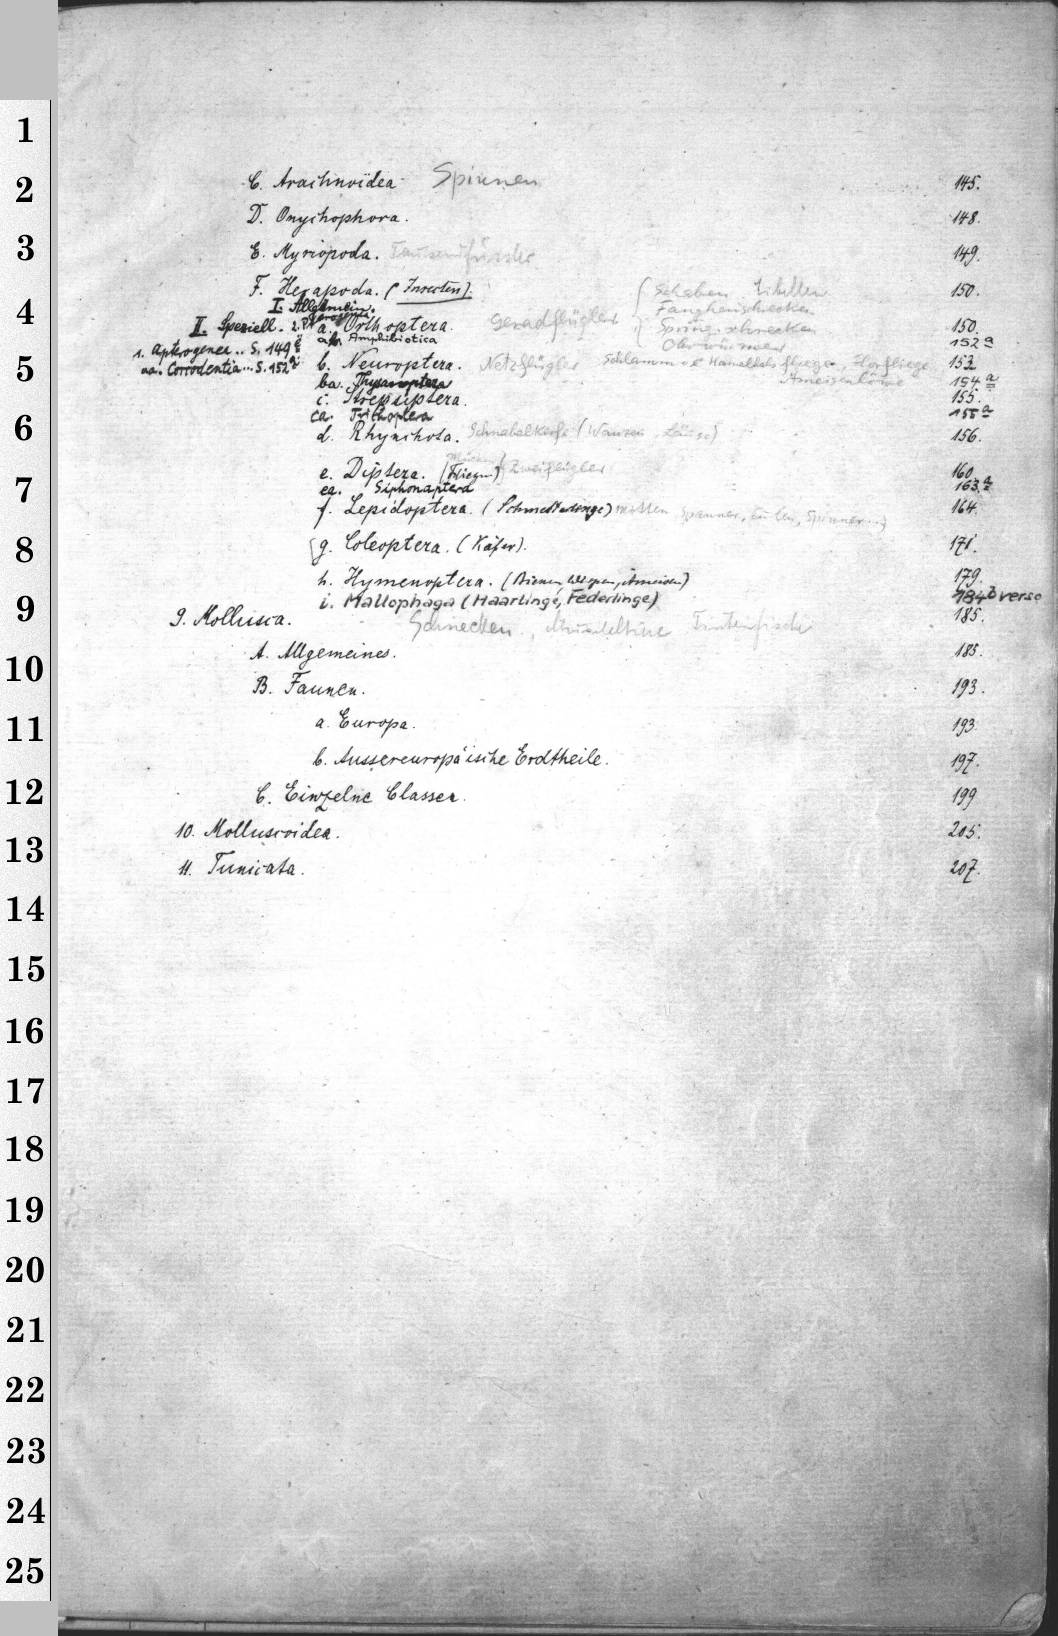 1
2
3
4
5
6
7
8
9
10
11
12
13
14
15
16
17
18
19
20
21
22
23
24
25
C. Arachnoidea Spinnen 145.
D. Onychophora. 148.
E. Myriopoda. Tausendfüssler 149.
F. Hexapoda. (Insecten). 150.
I. Allgemein.
II. Speziell. 2. a. Orthoptera. Geradflügler 150.
Schaben
Fangheuschrecken
Springschrecken
Ohrwürmer
1. Apterogenea .. S. 149
a/b. Amphibiotica 152a
aa. Corrodentia ... S. 152a
b. Neuroptera. Netzflügler Schlamm Florfliege 153
Ameisenlöwe
ba. Thysanoptera 154a
c. Strepsiptera. 155.
ca. Trichoptera 155a
d. Rhynchota. Schnabelkerfe (Wanzen, Läuse) 156.
e. Diptera. (Mücken Fliegen) Zweiflügler 160
ea. Siphonaptera 163a
f. Lepidoptera. (Schmetterlinge) Motten Spanner, Eulen, Spinner 164.
g. Coleoptera. (Käfer). 171.
h. Hymenoptera. (Bienen, Wespen, Ameisen) 179.
i. Mallophaga (Haarlinge, Federlinge) 184b verso
9. Mollusca. Schnecken, Muscheltiere Tintenfische 185.
A. Allgemeines. 185.
B. Faunen. 193.
a. Europa. 193
b. Aussereuropäische Erdtheile. 197.
C. Einzelne Classen. 199
10. Molluscoidea. 205.
11. Tunicata. 207.